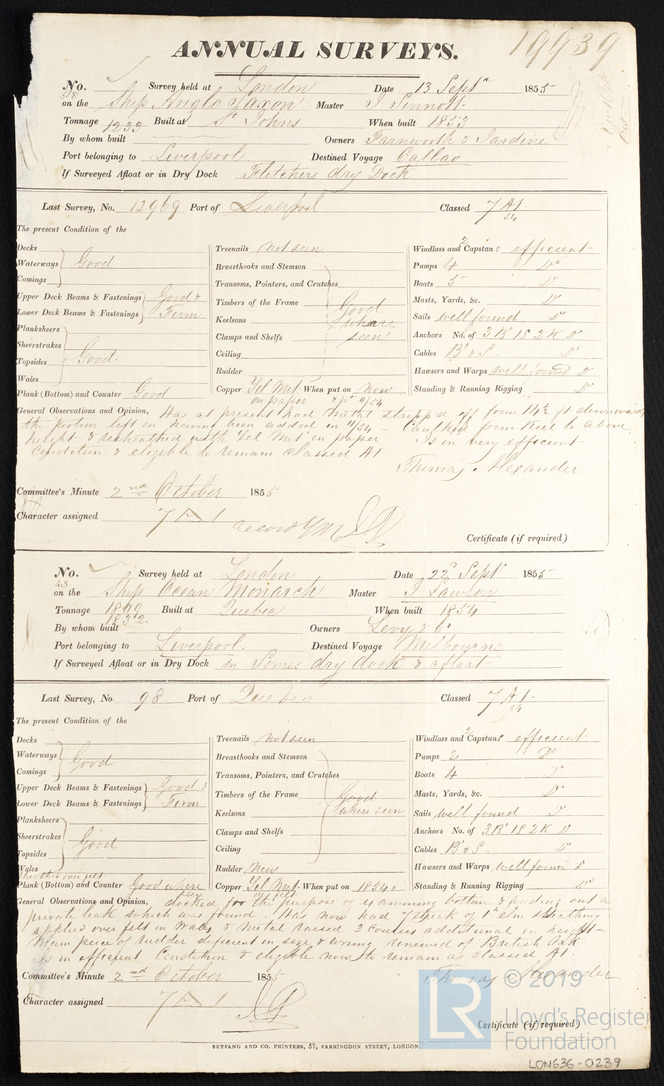 ANNUAL SURVEYS.
19939
No. 318 Survey held at London Date 13 Septr 1855
on the Ship Anglo Saxon Master J Sinnott
Tonnage 1233 Built at St Johns When built 1853
By whom built Owners Farnworth & Jardine
Port belonging to Liverpool Destined Voyage Callao
If Surveyed Afloat or in Dry Dock Fletchers dry Dock
Last Survey, No. 12969 Port of Liverpool Classed 7 A1 54
The present Condition of the
Decks
Waterways Good
Comings
Upper Deck Beams & Fastenings Good &
Lower Deck Beams & Fastenings Firm
Planksheers
Sheerstrakes
Topsides Good
Wales
Plank (Bottom) and Counter Good
Treenails not seen
Breasthooks and Stemson
Transoms, Pointers, and Crutches
Timbers of the Frame Good
Keelsons where
Clamps and Shelfs seen
Ceiling
Rudder
Copper Yel Met. When put on Now
on paper
Windlass and 2 Capstans efficient
Pumps 4 Do
Boats 5 Do
Masts, Yards, &c. Do
Sails well found Do
Anchors No. of 3 Br 1S 2K Do
Cables Br & S Do
Hawsers and Warps well found Do
Standing & Running Rigging Do
General Observations and Opinion, Has at present had metal stripped off from 14½ ft downwards
the portion left on having been added in 11/54 Caulked from Keel to above
height & resheathed with Yel Met in paper Is in very efficient
Condition & eligible to remain classed A1
Thomas Alexander
Committee's Minute 2nd October 1855
Character assigned 7 A 1 record YM
Certificate (if required)
No. 43 Survey held at London Date 22d Septr 1855
on the Ship Ocean Monarch Master J Lawson
Tonnage 1899 1832 Built at Quebec When built 1854
By whom built Owners Levy & Co
Port belonging to Liverpool. Destined Voyage Melbourne
If Surveyed Afloat or in Dry Dock in Somes dry dock & afloat
Last Survey, No. 98 Port of Quebec Classed 7 A1. 54
The present Condition of the
Decks
Waterways Good
Comings
Upper Deck Beams & Fastenings Good &
Lower Deck Beams & Fastenings Firm
Planksheers
Sheerstrakes
Topsides Good
Wales
Plank (Bottom) and Counter Good where seen
Treenails not seen
Breasthooks and Stemson
Transoms, Pointers, and Crutches
Timbers of the Frame Good
Keelsons where seen
Clamps and Shelfs
Ceiling
Rudder New
Copper Yel Met. When put on 1854
Windlass and 2 Capstans efficient
Pumps 2 Do
Boats 4 Do
Masts, Yards, &c. Do
Sails well found Do
Anchors No. of 3Br 1S 2K Do
Cables Br & S Do
Hawsers and Warps well found Do
Standing & Running Rigging Do
General Observations and Opinion, docked for the purpose of examining bottom & finding out a
private leak which was found. Has now had 7 strak of 1 in elm sheathing
applied over felt on Wales & Metal raised 3 courses additional in height
Main piece of rudder different in size & wrung renewed of British Oak
is in efficient Condition & eligible now to remain as classed A1.
Thomas Alexander
Committee's Minute 2nd October 1855
Character assigned 7 A 1
Certificate (if required)
LR © 2019
Lloyd's Register
Foundation
SEYFANG AND CO. PRINTERS, 57, FARRINGDON STREET, LONDON.
LON636-0239